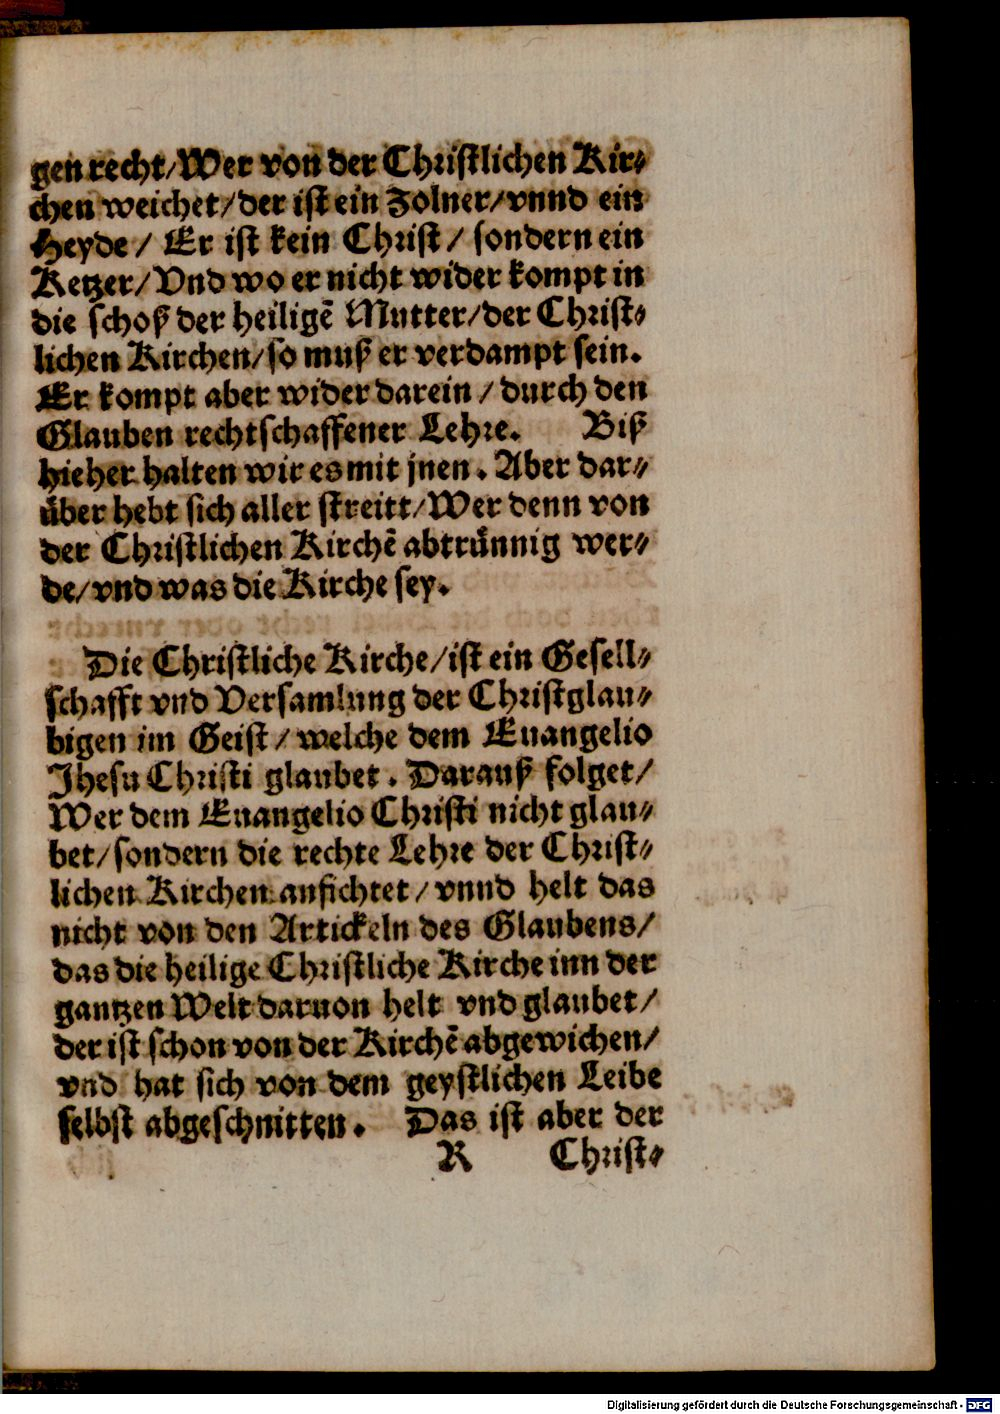 gen recht/Wer von der Christlichen Kir⸗
chen weichet/der ist ein Zolner/vnnd ein
Heyde/ Er ist kein Christ/ sondern ein
Ketzer/Vnd wo er nicht wider kompt in
die schoß der heiligē Mutter/der Christ⸗
lichen Kirchen/so muß er verdampt sein.
Er kompt aber wider darein/durch den
Glauben rechtschaffener Lehre. Biß
hieher halten wir es mit jnen. Aber dar⸗
uͤber hebt sich aller streitt/Wer denn von
der Christlichen Kirchē abtruͤnnig wer⸗
de/vnd was die Kirche sey.
Die Christliche Kirche/ist ein Gesell⸗
schafft vnd Versamlung der Christglau⸗
bigen im Geist/welche dem Euangelio
Jhesu Christi glaubet. Darauß folget/
Wer dem Euangelio Christi nicht glau⸗
bet/sondern die rechte Lehre der Christ⸗
lichen Kirchen anfichtet/vnnd helt das
nicht von den Artickeln des Glaubens/
das die heilige Christliche Kirche inn der
gantzen Welt daruon helt vnd glaubet/
der ist schon von der Kirchē abgewichen/
vnd hat sich von dem geystlichen Leibe
selbst abgeschnitten. Das ist aber der
R Christ⸗
Digitalisierung gefördert durch die Deutsche Forschungsgemeinschaft - DFG